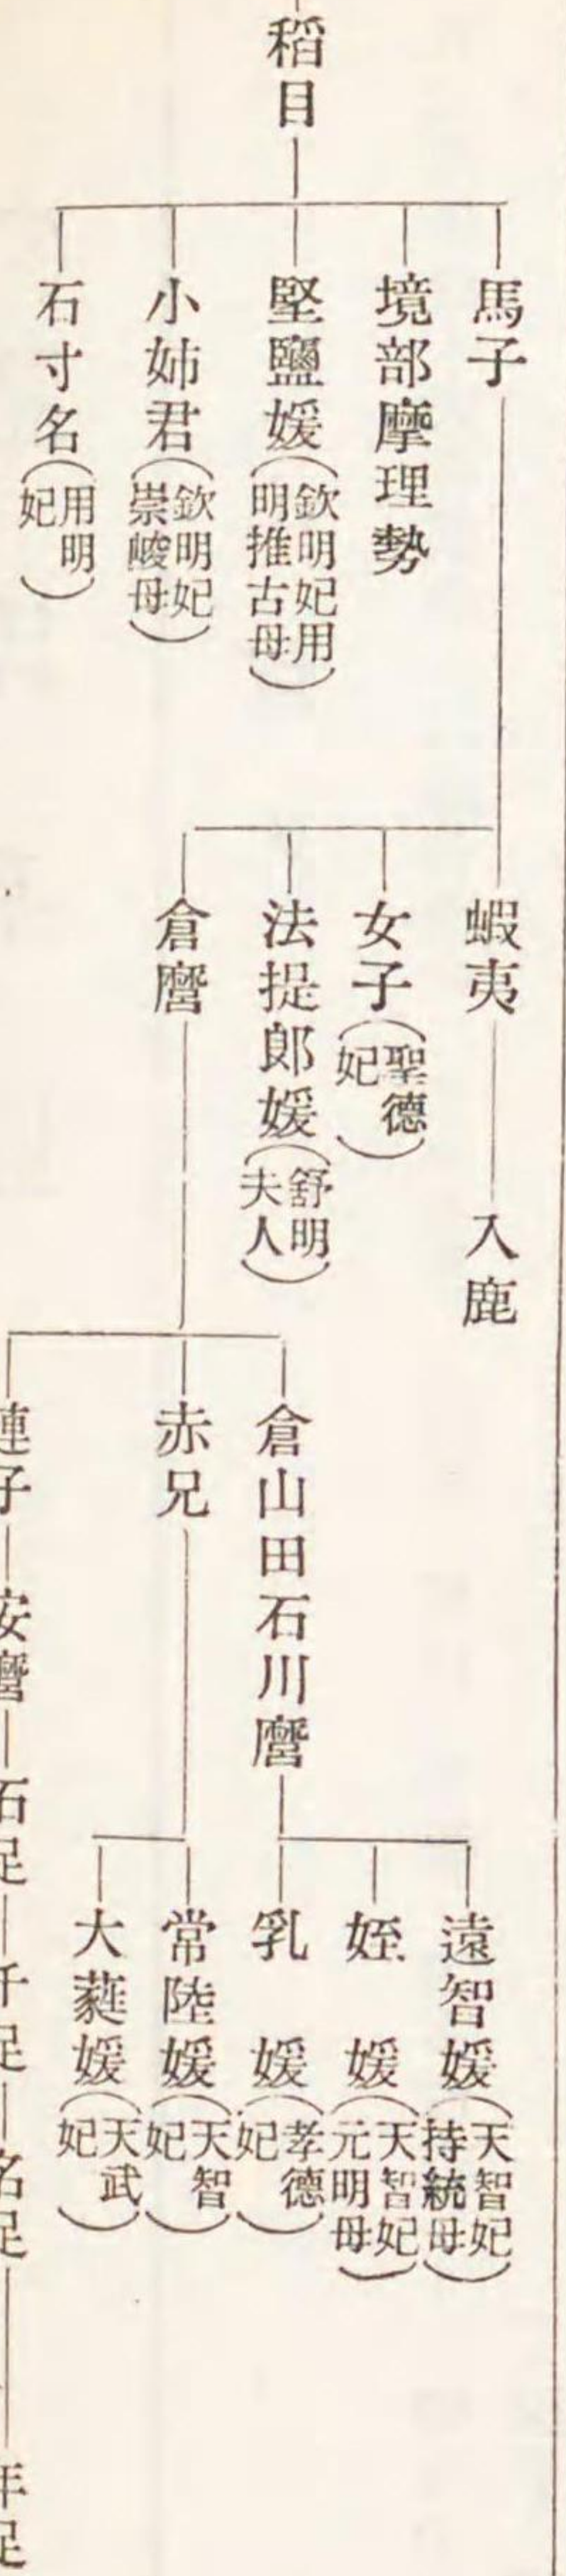 稻目
馬子
境部摩理勢
堅鹽媛(欽明妃用明推古母)
小姉君(欽明妃崇峻母)
石寸名(用明妃)
蝦夷
入鹿
女子(聖德妃)
法提郎媛(舒明夫人)
倉麿
倉山田石川麿
赤兄
連子
安麿
石足
千足
名足
年足
遠智媛(天智妃持統母)
姪媛(天智妃元明母)
乳媛(孝德妃)
常陸媛(天智妃)
大蕤媛(天武妃)